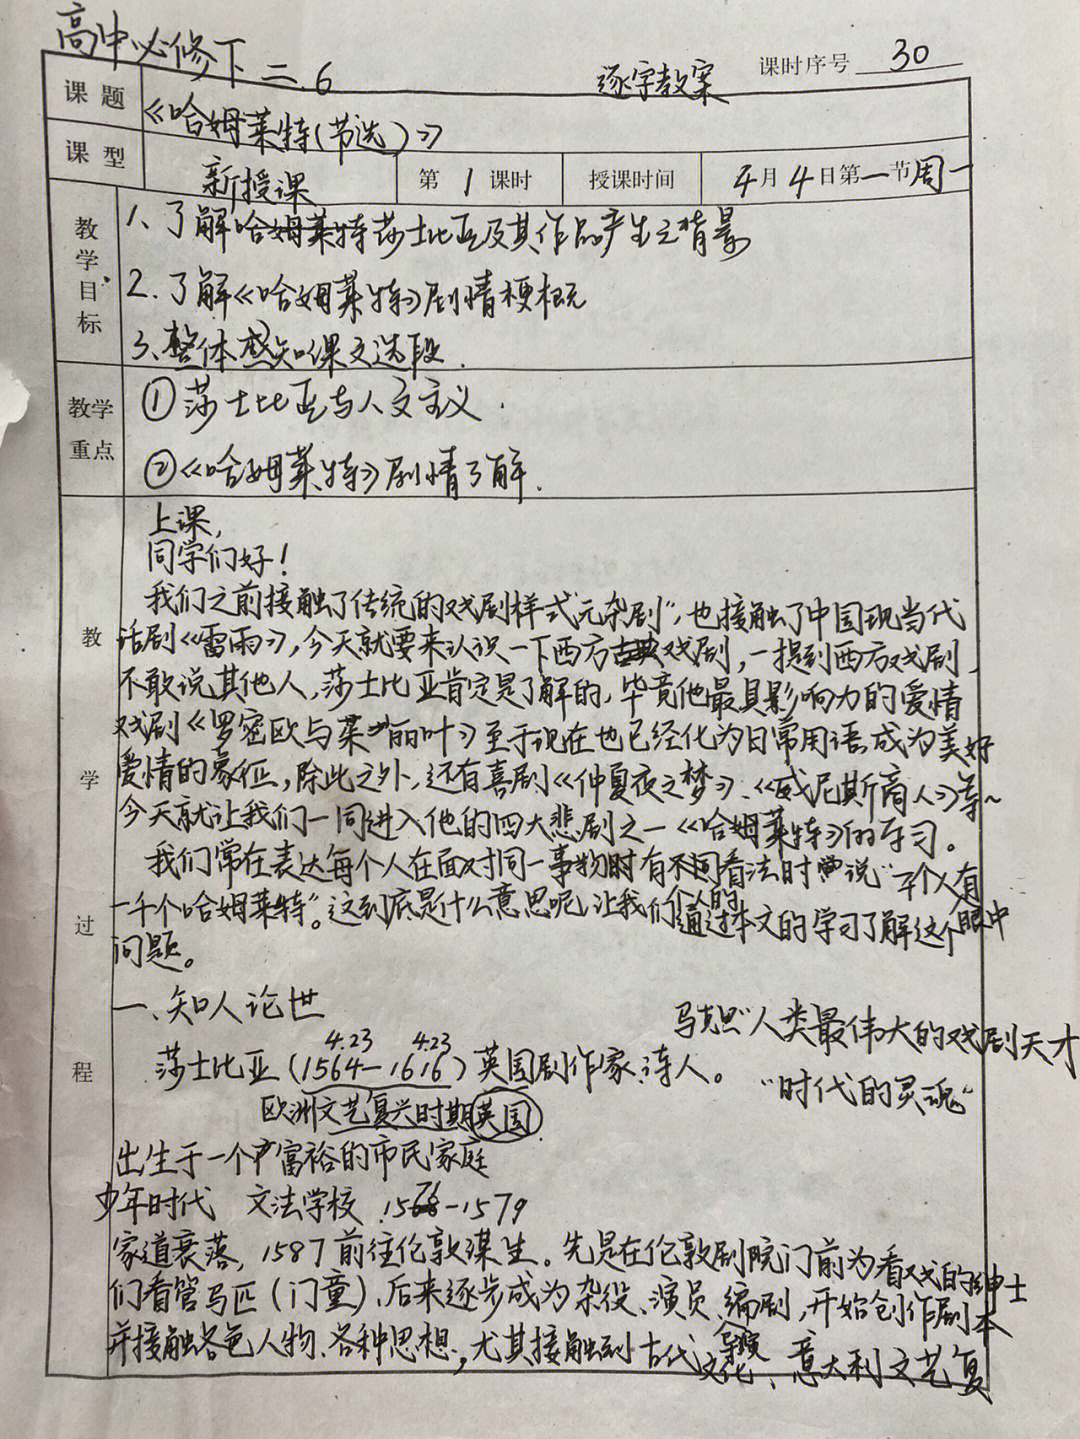 高中必修下 二.6
逐字教案
课时序号 30
课题 《哈姆莱特(节选)》
课型 新授课 第 1 课时 授课时间 4月4日第一节周一
教学目标
1、了解哈姆莱特莎士比亚及其作品产生之背景
2.了解《哈姆莱特》剧情梗概
3、整体感知课文选段.
教学重点
①莎士比亚与人文主义.
②《哈姆莱特》剧情了解.
教学过程
上课,
同学们好!
我们之前接触了传统的戏剧样式"元杂剧",也接触了中国现当代
话剧《雷雨》,今天就要来认识一下西方古典戏剧,一提到西方戏剧,
不敢说其他人,莎士比亚肯定是了解的,毕竟他最具影响力的爱情
戏剧《罗密欧与茱丽叶》至于现在也已经化为日常用语,成为美好
爱情的象征,除此之外,还有喜剧《仲夏夜之梦》、《威尼斯商人》等~
今天就让我们一同进入他的四大悲剧之一《哈姆莱特》的学习。
我们常在表达每个人在面对同一事物时有不同看法时会说"千个人有
一千个哈姆莱特"。这到底是什么意思呢,让我们通过本文的学习了解这个
个人的
眼中
问题。
一、知人论世
马克思"人类最伟大的戏剧天才
4.23 4.23
莎士比亚(1564-1616)英国剧作家、诗人。
"时代的灵魂"
欧洲文艺复兴时期英国
出生于一个富裕的市民家庭
少年时代 文法学校 1571-1579
家道衰落,1587前往伦敦谋生。先是在伦敦剧院门前为看戏的绅士
们看管马匹(门童),后来逐步成为杂役、演员、编剧,开始创作剧本
并接触各色人物、各种思想,尤其接触到古代文化、意大利文艺复